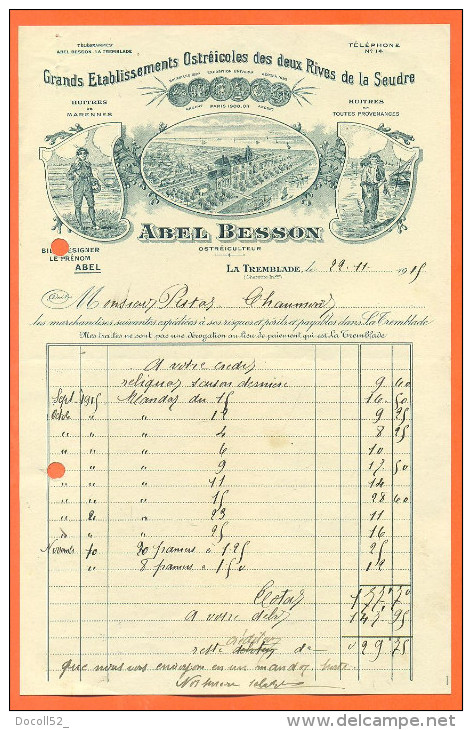 TÉLÉGRAMMES
ABEL BESSON. LA TREMBLADE
TÉLÉPHONE
No 14
Grands Etablissements Ostréicoles des deux Rives de la Seudre
HUITRES
DE
MARENNES
PARIS 1900
HUITRES
DE
TOUTES PROVENANCES
ABEL BESSON
OSTRÉICULTEUR
BIEN DÉSIGNER
LE PRÉNOM
ABEL
LA TREMBLADE, le 22. 11. 1915
(Charente Infre)
Doit Monsieur Chaumont
les marchandises suivantes expédiées à ses risques et périls et payables dans La Tremblade
Mes traites ne sont pas une dérogation au lieu de paiement qui est La Tremblade
A votre crédit
reliquat saison dernière 9 60
Sept. 1915 Mandat du 15 16 50
Octobre " " 12 9 25
" " " 4 8 25
" " " 6 10
" " " 9 17 50
" " " 11 14
" " " 15 28 60
" " " 23 11
" " " 25 16
Novembre 10 20 paniers à 1 25 25
" 8 paniers à 1 50 12
Total
A votre débit 143 95
reste de
que nous vous envoyons en un mandat
Nos
Docoll52_
www.delcampe.net